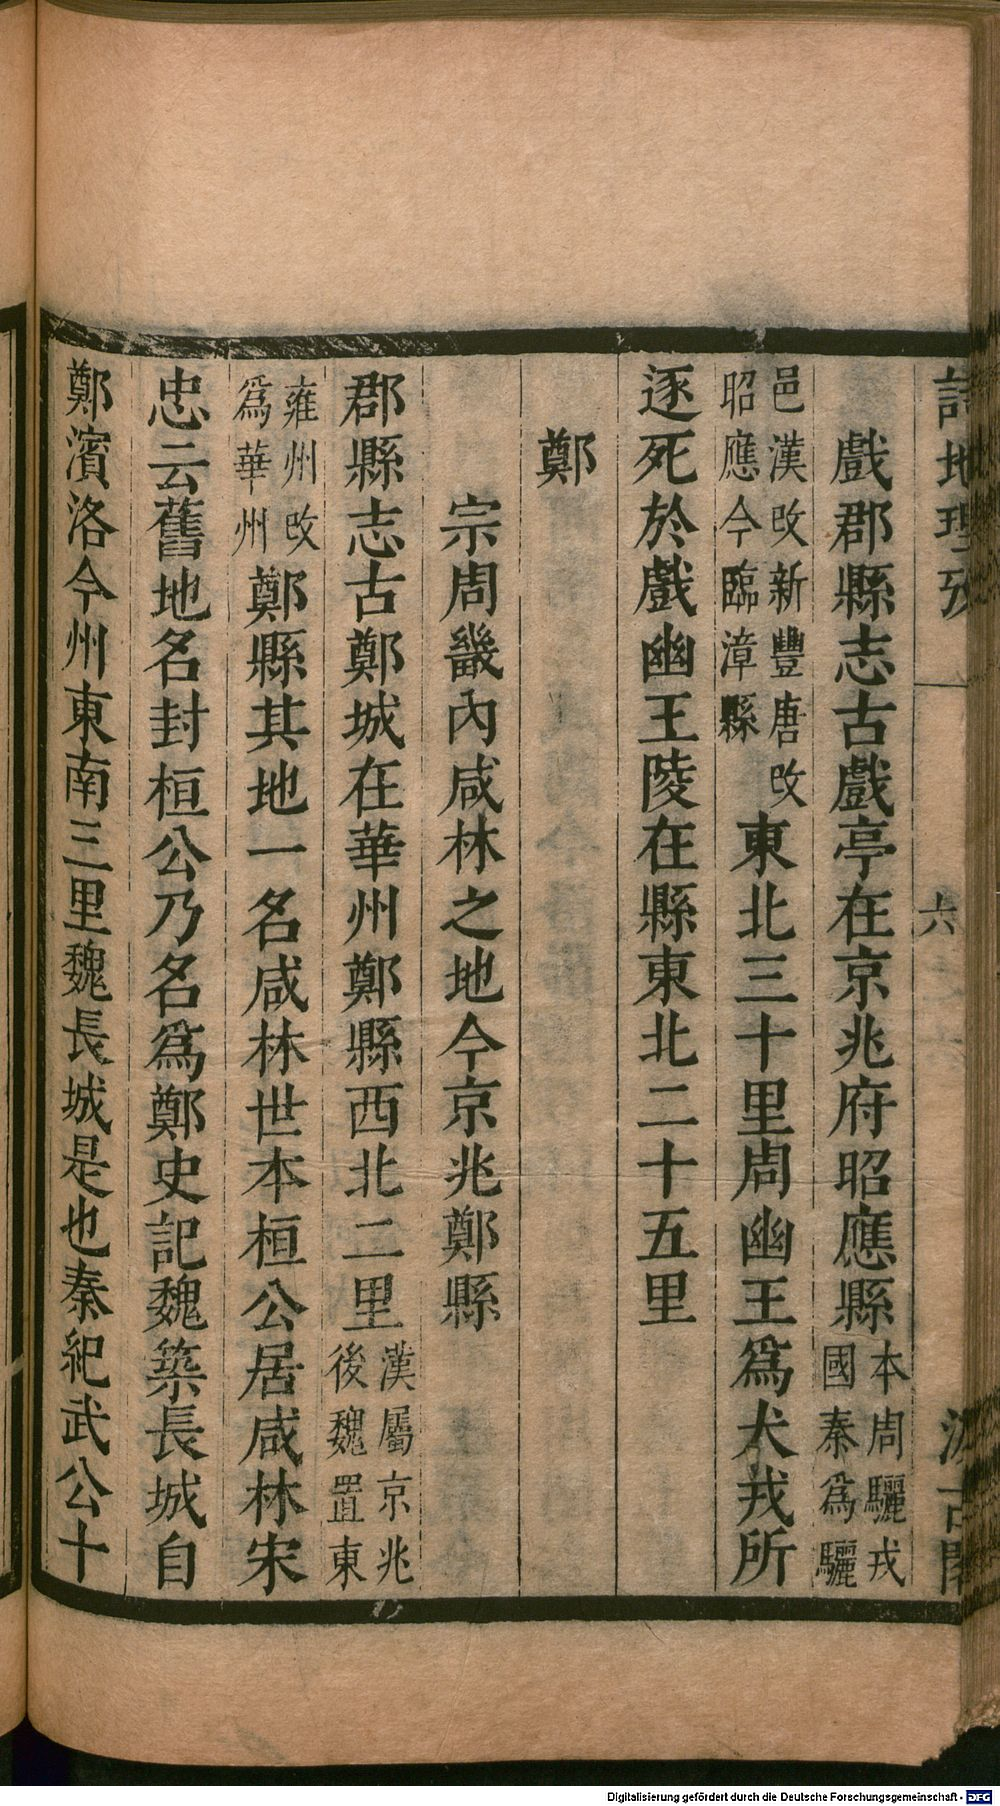 詩地理攷
六
汲古閣
戲郡縣志古戲亭在京兆府昭應縣本周驪戎國秦爲驪
邑漢攺新豐唐攺昭應今臨漳縣東北三十里周幽王爲犬戎所
逐死於戲幽王陵在縣東北二十五里
鄭
宗周畿內咸林之地今京兆鄭縣
郡縣志古鄭城在華州鄭縣西北二里漢屬京兆後魏置東
雍州攺爲華州鄭縣其地一名咸林世本桓公居咸林宋
忠云舊地名封桓公乃名爲鄭史記魏築長城自
鄭濱洛今州東南三里魏長城是也秦紀武公十
Digitalisierung gefördert durch die Deutsche Forschungsgemeinschaft - DFG